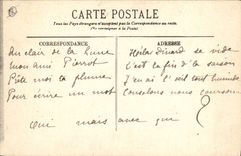 CARTE POSTALE
Tous les Pays étrangers n'acceptent pas la Correspondance au recto.
(Se renseigner à la Poste)
CORRESPONDANCE
Au clair de la Lune
mon ami Pierrot
Prête moi ta plume
Pour écrire un mot
Oui mais avec que ?
ADRESSE
Hélas Dinard se vide
C'est la fin de la saison
J'en ai l'œil tout humide
Consolons nous